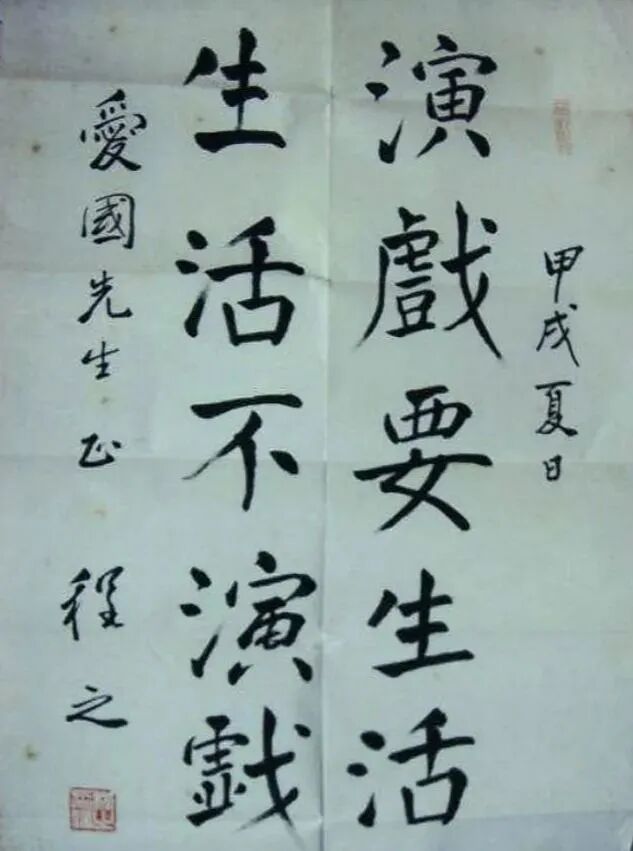 甲戌夏日
演戲要生活
生活不演戲
愛國先生正
程之